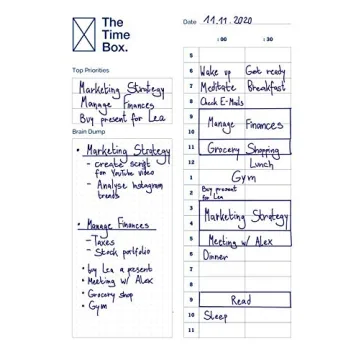 The
Time
Box.
Date 11.11.2020
:00 :30
Top Priorities
Marketing Strategy
Manage Finances
Buy present for Lea
Brain Dump
• Marketing Strategy
– create script
for YouTube video
– Analyse Instagram
trends
• Manage Finances
– Taxes
– Stock portfolio
• buy Lea a present
• Meeting w/ Alex
• Grocery shop
• Gym
5
6 Wake up Get ready
7 Meditate Breakfast
8 Check E-Mails
9
Manage Finances
10
11 Grocery Shopping
12 Lunch
1 Gym
2 Buy present
for Lea
3
Marketing Strategy
4
5 Meeting w/ Alex
6 Dinner
7
8
9 Read
10 Sleep
11